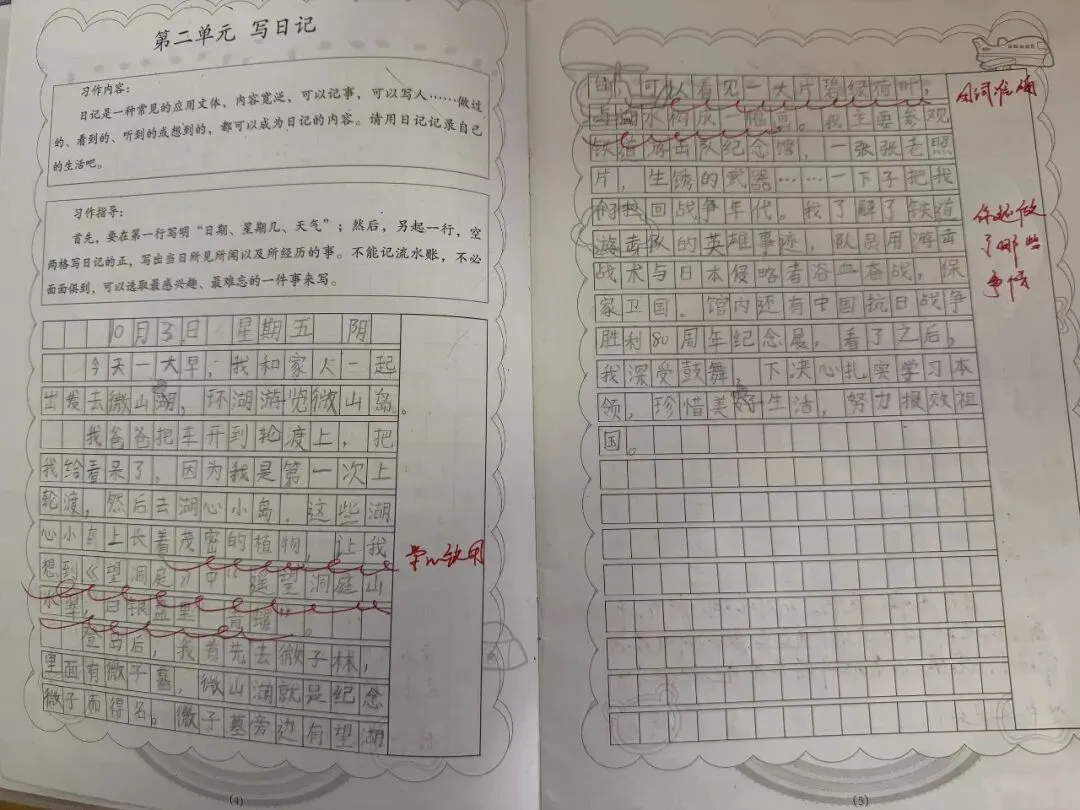 第二单元 写日记
习作内容:
日记是一种常见的应用文体，内容宽泛，可以记事，可以写人……做过
的、看到的、听到的或想到的，都可以成为日记的内容。请用日记记录自己
的生活吧。
习作指导:
首先，要在第一行写明“日期、星期几、天气”；然后，另起一行，空
两格写日记的正，写出当日所见所闻以及所经历的事。不能记流水账，不必
面面俱到，可以选取最感兴趣、最难忘的一件事来写。
10月3日 星期五 阴
今天一大早，我和家人一起
出发去微山湖，环湖游览微山岛。
我爸爸把车开到轮渡上，把
我给看呆了，因为我是第一次上
轮渡，然后去湖心小岛．这些湖
心小岛上长着茂密的植物，让我
想到《望洞庭》中“遥望洞庭山
水翠，白银盘里一青螺”。
学以致用
登岛后，我首先去微子林，
里面有微子墓，微山湖就是纪念
微子而得名。微子墓旁边有望湖
(4)
可以看见一大片碧绿荷叶，
水构成一幅画。我主要参观
用词准确
铁道游击队纪念馆，一张张老照
片，生锈的武器……一下子把我
回战争年代。我了解了铁道
你还做
游击队的英雄事迹，队员用游击
了哪些
战术与日本侵略者浴血奋战，保
事情
家卫国．馆内还有中国抗日战争
胜利80周年纪念展，看了之后，
我深受鼓舞，下决心扎实学习本
领，珍惜美好生活，努力报效祖
国。
(5)